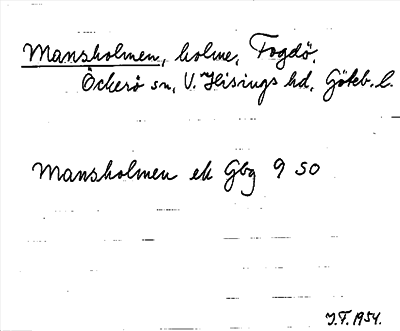 Mansholmen, holme, Fogdö.
Öckerö sn, V. Hisings hd, Göteb. l.
Mansholmen ek Gbg 9 SO
J.F. 1954.